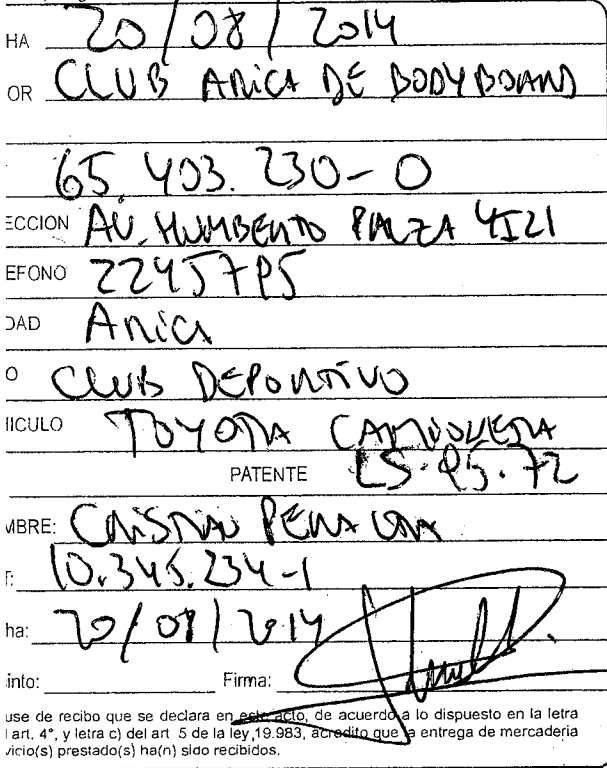 HA 20/08/2014
OR CLUB ARICA DE BODYBOARD
65.403.230-0
ECCION AV. HUMBERTO PALZA 4121
EFONO 2245795
DAD Arica
O CLUB DEPORTIVO
HICULO TOYOTA CAMIONETA
PATENTE LS.95.72
MBRE: CRISTIAN PEÑA
T: 10.345.234-1
ha: 20/08/2014
into: Firma:
use de recibo que se declara en este acto, de acuerdo a lo dispuesto en la letra
l art. 4°, y letra c) del art 5 de la ley,19.983, acredito que la entrega de mercaderia
vicio(s) prestado(s) ha(n) sido recibidos.